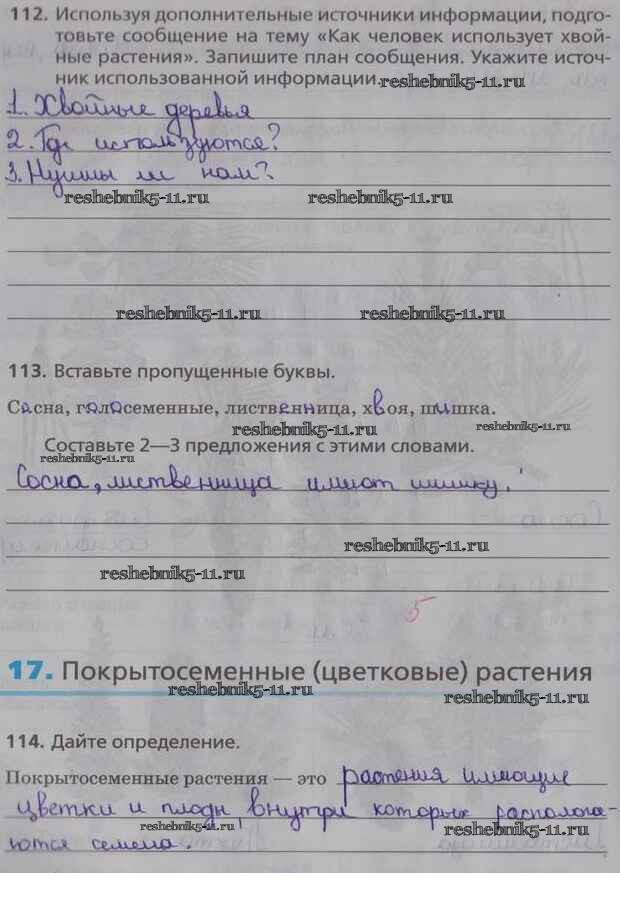 112. Используя дополнительные источники информации, подго-
товьте сообщение на тему «Как человек использует хвой-
ные растения». Запишите план сообщения. Укажите источ-
ник использованной информации. reshebnik5-11.ru
1. Хвойные деревья
2. Где используются?
3. Нужны ли нам?
reshebnik5-11.ru reshebnik5-11.ru
reshebnik5-11.ru reshebnik5-11.ru
113. Вставьте пропущенные буквы.
Сосна, голосеменные, лиственница, хвоя, шишка.
reshebnik5-11.ru reshebnik5-11.ru
Составьте 2—3 предложения с этими словами.
reshebnik5-11.ru
Сосна, лиственница имеют шишку.
reshebnik5-11.ru
reshebnik5-11.ru
5
17. Покрытосеменные (цветковые) растения
reshebnik5-11.ru reshebnik5-11.ru
114. Дайте определение.
Покрытосеменные растения — это растения имеющие
цветки и плоды, внутри которых располога-
reshebnik5-11.ru reshebnik5-11.ru
ются семена.